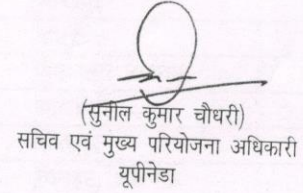 (सुनील कुमार चौधरी)
सचिव एवं मुख्य परियोजना अधिकारी
यूपीनेडा